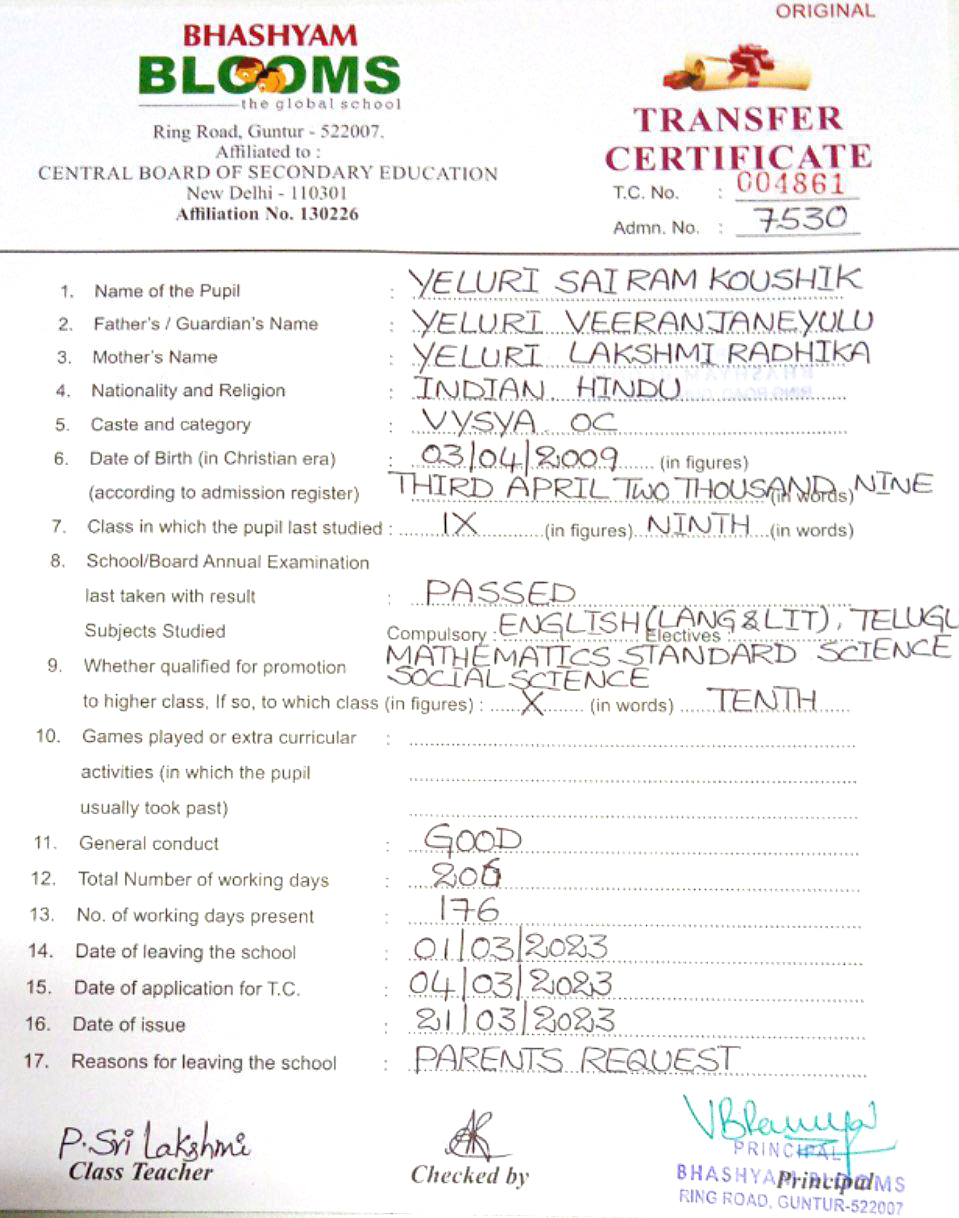 ORIGINAL
BHASHYAM
BLOOMS
the global school
Ring Road, Guntur - 522007.
Affiliated to :
CENTRAL BOARD OF SECONDARY EDUCATION
New Delhi - 110301
Affiliation No. 130226
TRANSFER
CERTIFICATE
T.C. No. : 004861
Admn. No. : 7530
1. Name of the Pupil : YELURI SAI RAM KOUSHIK
2. Father's / Guardian's Name : YELURI VEERANJANEYULU
3. Mother's Name : YELURI LAKSHMI RADHIKA
4. Nationality and Religion : INDIAN HINDU
5. Caste and category : VYSYA OC
6. Date of Birth (in Christian era) : 03/04/2009 (in figures)
(according to admission register) THIRD APRIL TWO THOUSAND NINE (in words)
7. Class in which the pupil last studied : IX (in figures) NINTH (in words)
8. School/Board Annual Examination
last taken with result : PASSED
Subjects Studied Compulsory : ENGLISH (LANG & LIT), TELUGU Electives
MATHEMATICS STANDARD SCIENCE
9. Whether qualified for promotion SOCIAL SCIENCE
to higher class, If so, to which class (in figures) : X (in words) TENTH
10. Games played or extra curricular :
activities (in which the pupil
usually took past)
11. General conduct : GOOD
12. Total Number of working days : 206
13. No. of working days present : 176
14. Date of leaving the school : 01/03/2023
15. Date of application for T.C. : 04/03/2023
16. Date of issue : 21/03/2023
17. Reasons for leaving the school : PARENTS REQUEST
P. Sri Lakshmi
Class Teacher
Checked by
Principal
PRINCIPAL
BHASHYAM BLOOMS
RING ROAD, GUNTUR-522007